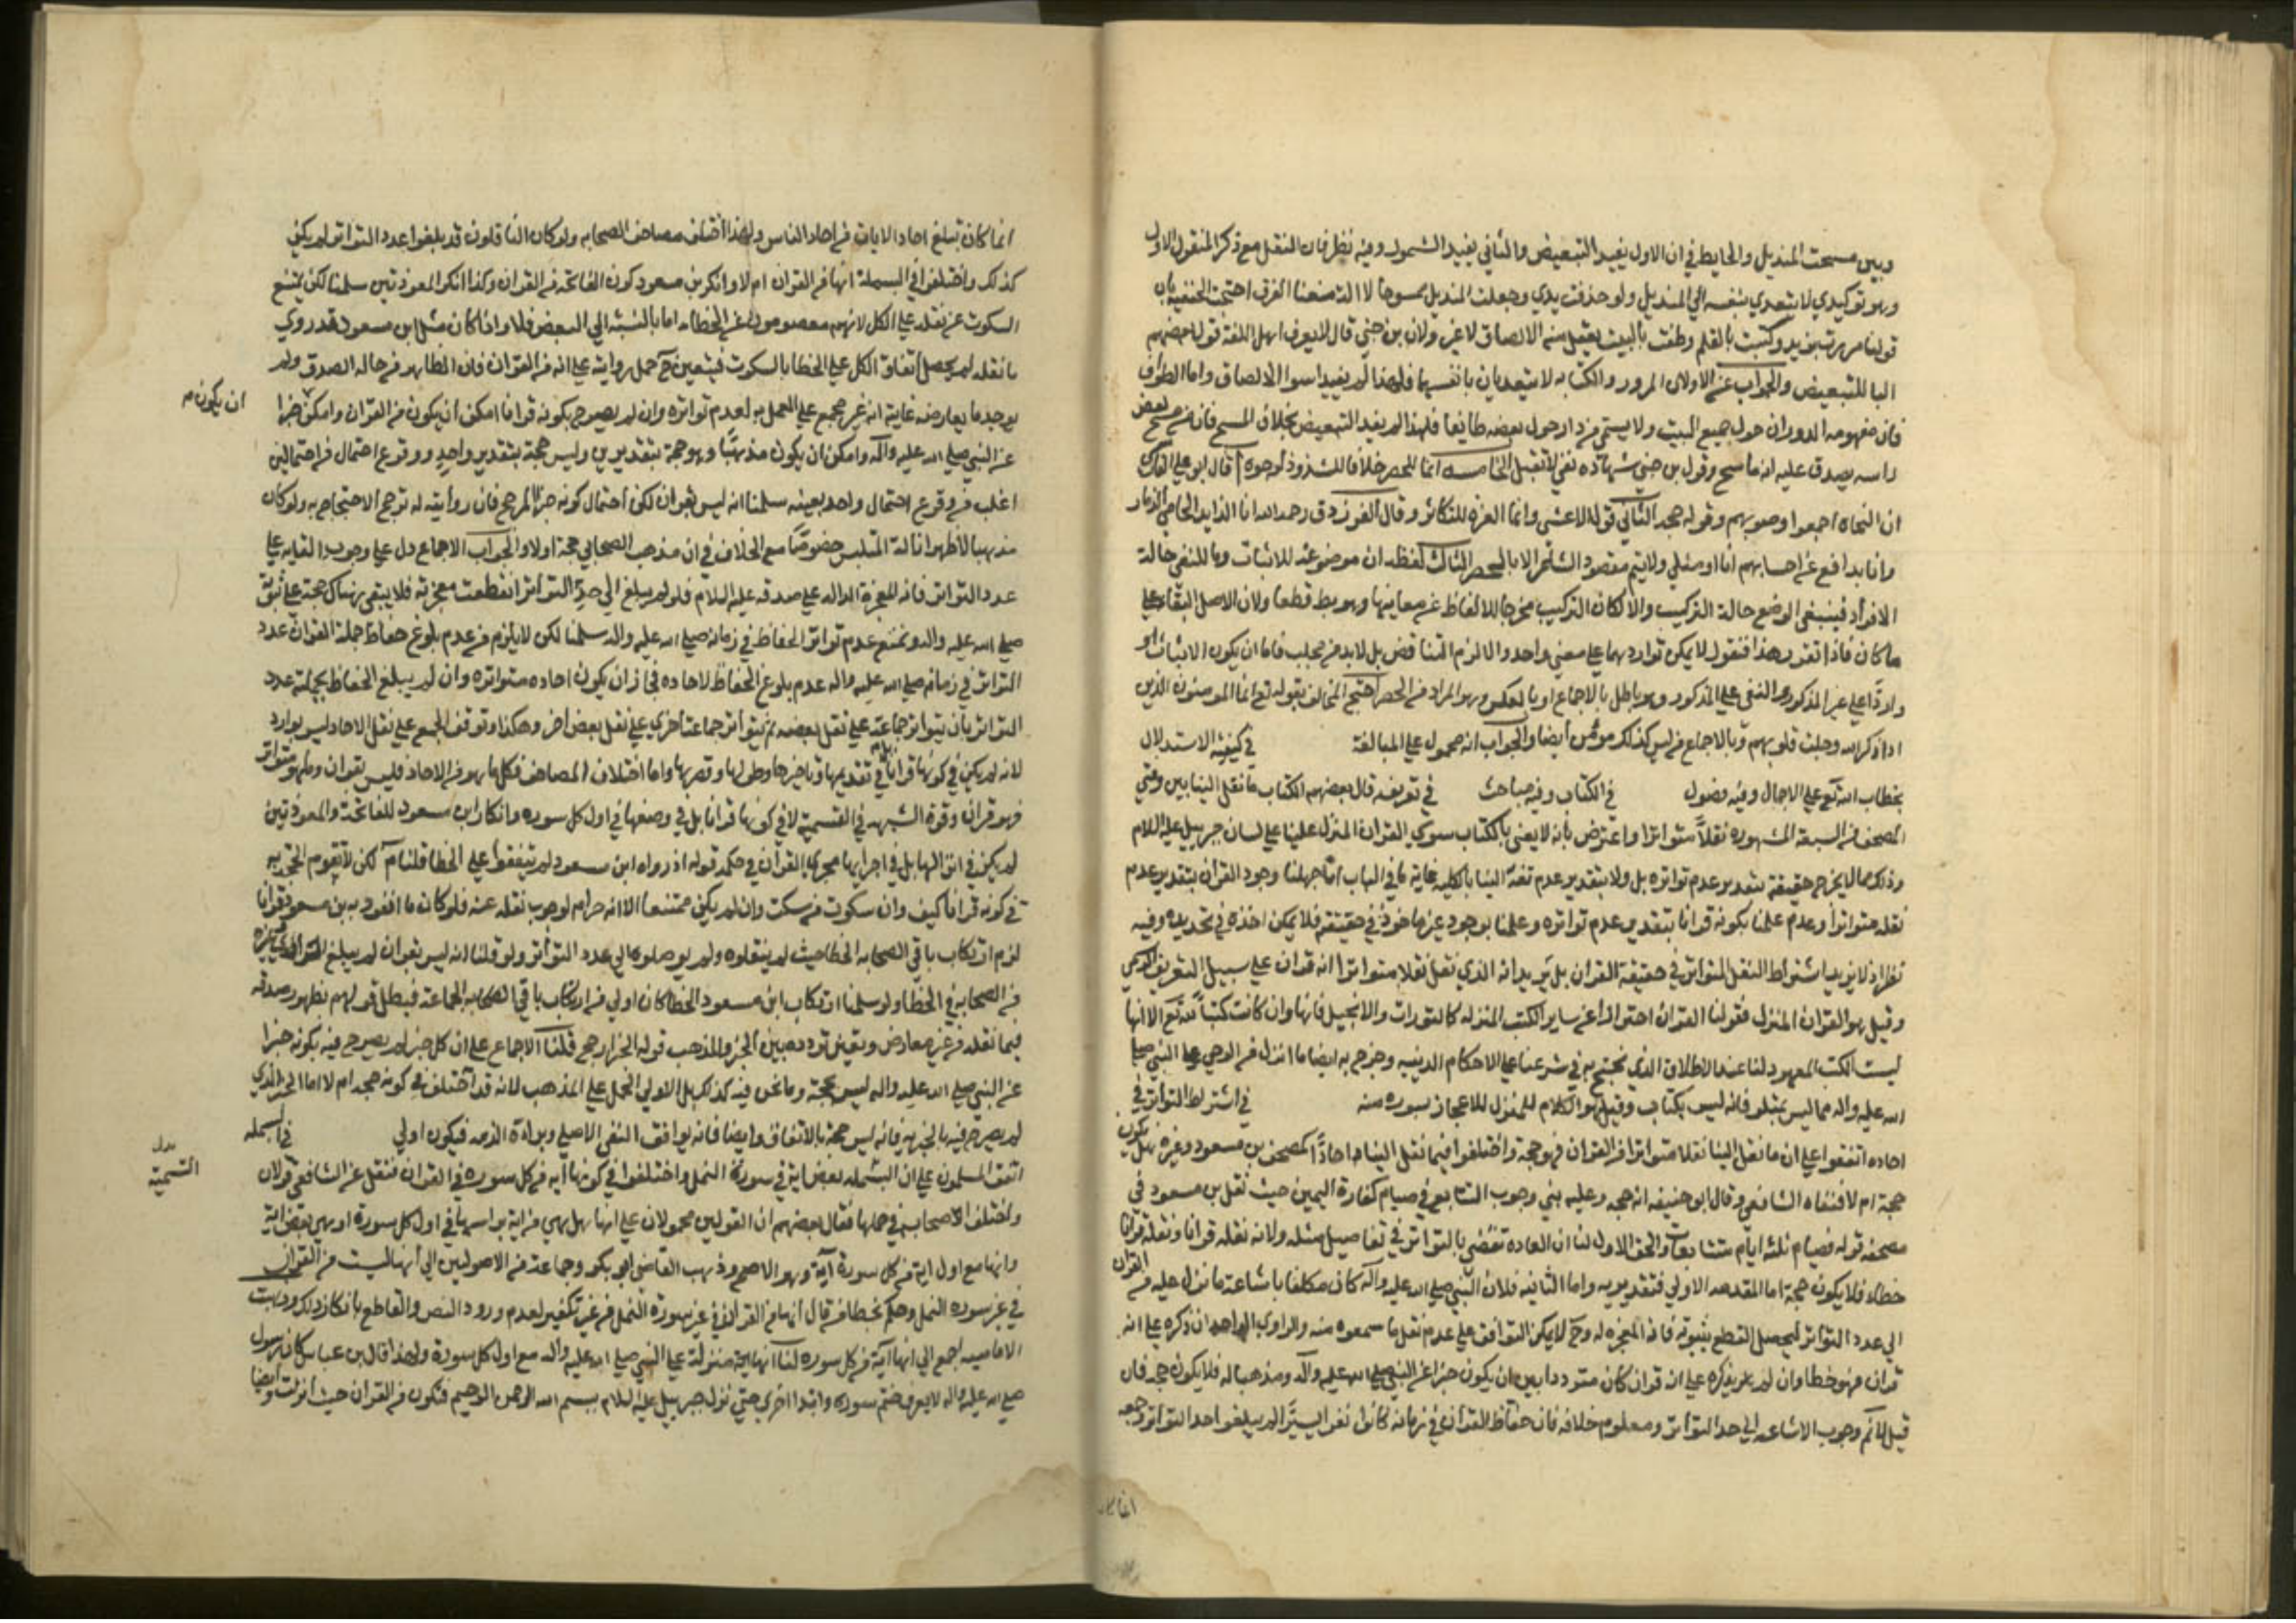 وبين مسحت المنديل والحايط في ان الاول يفيد التبعيض والثاني يفيد الشمول وفيه نظر فان النقل مع ذكر المنقول الاول
وهو توكيدي لا يتعدي بنفسه الي المنديل ولو حذفت يدي وجعلت المنديل ممسوحا لا الة منعنا الفرق احتجت الحنفية بان
قولنا مررت بزيد وكتبت بالقلم وطفت بالبيت يعقل منه الالصاق لا غير ولان بن جني قال لا يعرف اهل اللغة قول بعضهم
البا للتبعيض والجواب عن الاولان المرور والكتابه لا يتعديان بانفسهما فلهذا لم يفيدا سوا الالصاق واما الطواف
فان مفهومه الدوران حول جميع البيت ولا يسمي من دار حول بعضه طايفا فلهذا لم يفيد التبعيض بخلاف المسح فان من مسح بعض
راسه يصدق عليه انه ماسح وقول بن جني شهادة نفي لا تقبل الخامسه انما للحصر خلافا للشذوذ لوجوه ا قال ابو علي الفارسي
ان النحاه اجمعوا وصوبهم وقوله حجه الثاني قوله الاعشي وانما العزه للكاثر وقال الفرزدق رحمه الله انا الذايد الحامي الذمار
وانما يدافع عن احسابهم انا او مثلي ولا يتم مقصود الشاعر الا بالحصر الثالث لفظه ان موضوعة للاثبات وما للنفي حالة
الافراد فينبغي الوضع حالة التركيب والا لكان التركيب مخرجا للالفاظ عن معانيها وهو بط قطعا ولان الاصل البقا علي
ما كان فاذا تقرر هذا فنقول لا يمكن تواردهما علي معني واحد والا لزم التناقض بل لابد من محلين فاما ان يكون الاثبات
واردا علي غير المذكور والنفي علي المذكور وهو باطل بالاجماع او بالعكس وهو المراد من الحصر احتج المخالف بقوله تع انما المومنون الذين
اذا ذكر الله وجلت قلوبهم وبالاجماع من ليس كذلك مومن ايضا والجواب انه محمول علي المبالغة في كيفية الاستدلال
بخطاب الله تع علي الاجمال وفيه فصول في الكتاب وفيه مباحث في تعريفه قال بعضهم الكتاب ما نقل الينا بين دفتي
المصحف من السبعة المشهوره نقلا متواترا واعترض بانه لا يعني بالكتاب سوي القران المنزل علينا علي لسان جبريل عليه السلام
وذلك مما لا يخرج حقيقة بتقدير عدم تواتره بل ولا بتقدير عدم نقله الينا بالكليه غاية ما في الباب انا جهلنا وجود القران بتقدير عدم
نقله متواترا وعدم علمنا بكونه قرانا بتقدير عدم تواتره وعلمنا بوجود غير ماخوذ في حقيقته فلا يمكن اخذه في تحديده وفيه
نظر اذ لا يريد اشتراط النقل المتواتر في حقيقة القران بل يريد انه الذي نقل نقلا متواترا انه قران علي سبيل التعريف الرسمي
وقيل هو القران المنزل فقولنا القران احترازا عن ساير الكتب المنزله كالتورات والانجيل فانها وان كانت كتبا لله تع الا انها
ليست الكتب المعهود لنا عند الاطلاق الذي نحتج به في شرعنا علي الاحكام الدينيه وخرج به ايضا ما انزل من الوحي علي النبي صلي
الله عليه واله مما ليس يتلو فانه ليس بكتاب وقيل هو الكلام المنزل للاعجاز بسوره منه في اشتراط التواتر في
احاده اتفقوا علي ان ما نقل الينا نقلا متواترا من القران فهو حجة واختلفوا فيما نقل الينا احادا كمصحف بن مسعود وغيره هل يكون
حجة ام لا فنفاه الشافعي وقال ابو حنيفه انه حجه وعليه بني وجوب التتابع في صيام كفارة اليمين حيث نقل بن مسعود في
مصحفه قوله فصيام ثلثة ايام متتابعات والحق الاول لنا ان العاده تقضي بالتواتر في تفاصيل مثله ولانه نقله قرانا ونقله قرانا
خطاء فلا يكون حجة اما المقدمه الاولي فتقديريه واما الثانيه فلان النبي صلي الله عليه واله كان مكلفا باشاعة ما نزل عليه من القران
الي عدد التواتر ليحصل القطع بثبوته فانه المعجزه له وح لا يمكن التوافق علي عدم نقل ما سمعوه منه والراوي الواحد ان ذكره علي انه
قران فهو خطا وان لم يذكره علي انه قران كان مترددا بين ان يكون خبرا عن النبي صلي الله عليه واله ومذهبا له فلا يكون حجه فان
قيل لا نم وجوب الاشاعه الي حد التواتر ومعلوم خلافه فان حفاظ القران في زمانه كانوا نفرا يسيرا لم يبلغوا احد التواتر وجمعه
انما كان
انما كان تبلغ احاد الايات من احاد الناس ولهذا اختلف مصاحف الصحابه ولو كان الناقلون قد بلغوا عدد التواتر لم يكن
كذلك واختلفوا في البسملة انها من القران ام لا وانكر بن مسعود كون الفاتحة من القران وكذا انكر المعوذتين سلمنا لكن يمتنع
السكوت عن نقله علي الكل لانهم معصومون عن الخطاء اما بالنسبة الي البعض فلا واذا كان مثل ابن مسعود قد روي
ما نقله لم يحصل اتفاق الكل علي الخطا بالسكوت فيتعين ح حمل روايته علي انه من القران فان الظاهر من حاله الصدق ولم
يوجد ما يعارضه غايته انه غير مجمع علي العمل به لعدم تواتره وان لم يصرح بكونه قرانا امكن ان يكون من القران وامكن خبرا
ان يكون
عن النبي صلي الله عليه واله وامكن ان يكون مذهبا وهو حجة بتقديرين وليس حجة بتقدير واحد ووقوع احتمال من احتمالين
اغلب من وقوع احتمال واحد بعينه سلمنا انه ليس بقران لكن احتمال كونه خبرا ارجح فان روايته له ترجح الاحتجاج به ولو كان
مذهبا لاظهر ازالة التلبس خصوصا مع الخلاف في ان مذهب الصحابي حجة اولا والجواب الاجماع دل علي وجوب القايه علي
عدد التواتر فانه المعجزة الداله علي صدقه عليه السلام فلو لم يبلغ الي حد التواتر انقطعت معجزته فلا يبقي هناك حجة علي نبوته
صلي الله عليه واله ونمنع عدم تواتر الحفاظ في زمانه صلي الله عليه واله سلمنا لكن لا يلزم من عدم بلوغ حفاظ جملة القران عدد
التواتر في زمانه صلي الله عليه واله عدم بلوغ الحفاظ لاحاده فجاز ان يكون احاده متواتره وان لم يبلغ الحفاظ بجملته عدد
التواتر بان يتواتر جماعة علي نقل بعضه ثم يتواتر جماعة اخري علي نقل بعض اخر وهكذا وتوقف الجمع علي نقل الاحاد ليس بوارد
لانه لم يكن في كونها قرانا بل في تقديمها وتاخيرها وطولها وقصرها واما اختلاف المصاحف فكل ما هو من الاحاد فليس بقران وما هو متواتر
فهو قران وقوة الشبهه في التسمية لا في كونها قرانا بل في وضعها في اول كل سوره وانكار ابن مسعود للفاتحة والمعوذتين
لم يكن في انزالها بل في اجرايها مجري القران في حكمه قوله اذ رواه ابن مسعود لم يتفقوا علي الخطا قلنا نم لكن لا تقوم الحجة به
في كونه قرانا كيف وان سكوت من سكت وان لم يكن ممتنعا الا انه حرام لوجوب نقله عنه فلو كان ما انفرد به بن مسعود قرانا
لزم ارتكاب باقي الصحابه الخطا حيث لم ينقلوه ولم يوصلوه الي عدد التواتر ولو قلنا انه ليس بقران لم يبلغ
من الصحابه في الخطا ولو سلمنا ارتكاب ابن مسعود الخطا كان اولي من ارتكاب باقي الصحابه الجماعة فبطل قولهم بظهور صدقه
فيما نقله من غير معارض وتعين تردده بين الخبر والمذهب قوله الخبر ارجح قلنا الاجماع علي ان كل خبر لم يصرح فيه بكونه خبرا
عن النبي صلي الله عليه واله ليس بحجة وما نحن فيه كذلك بل الاولي الحمل علي المذهب لانه قد اختلف في كونه حجه ام لا اما الخبر الذي
لم يصرح فيه بالخبريه فانه ليس حجة بالاتفاق وايضا فانه يوافق النفي الاصلي وبراءة الذمه فيكون اولي في البسمله
بدل التسمية
اتفق المسلمون علي ان البسمله بعض اية في سورة النمل واختلفوا في كونها ايه من كل سوره في القران فنقل عن الشافعي قولان
واختلف الاصحاب في حملها فقال بعضهم ان القولين محمولان علي انها هل هي من اية براسها في اول كل سورة او هي بعض اية
وانها مع اول اية من كل سورة آية وهو الاصح وذهب القاضي ابو بكر وجماعة من الاصوليين الي انها ليست من القران
في غير سوره النمل وحكم بخطا من قال انها من القران في غير سورة النمل من غير تكفير لعدم ورود النص والقاطع بانكار ذلك وذهبت
الاماميه اجمع الي انها آية من كل سوره لنا انها اية منزلة علي النبي صلي الله عليه واله مع اول كل سورة ولهذا قال بن عباس كان رسول
صلي الله عليه واله لا يعرف ختم سوره وابتدا اخري حتي نزل جبرييل عليه السلام ببسم الله الرحمن الرحيم فتكون من القران حيث انزلت وايضا